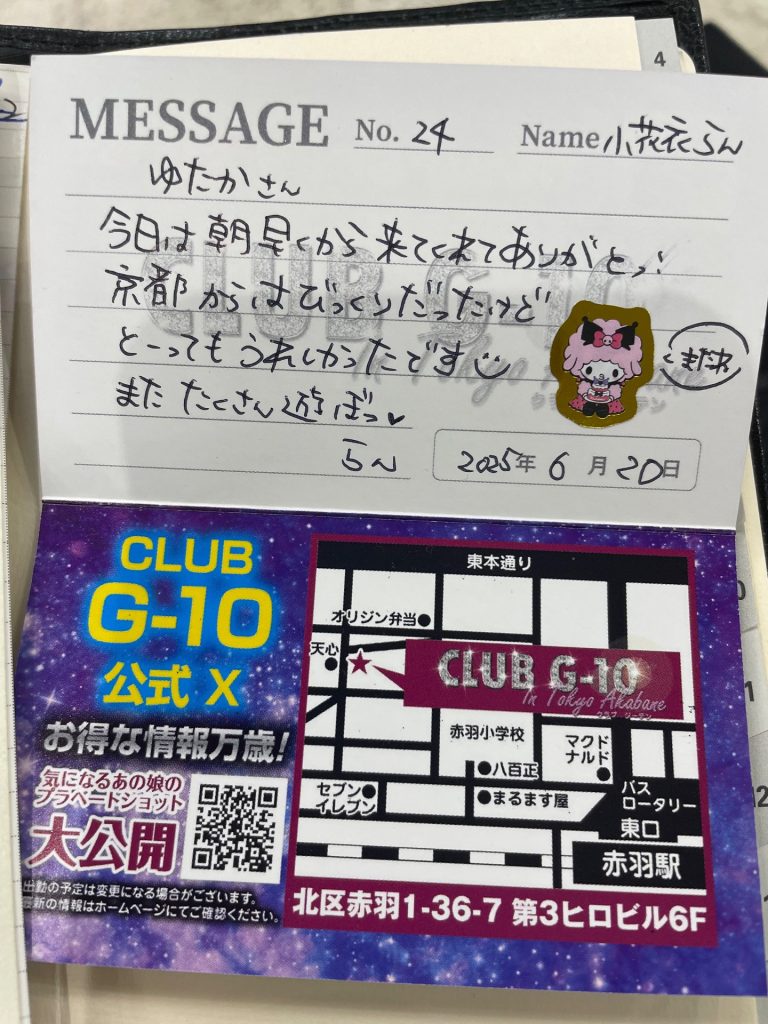 4
MESSAGE No. 24 Name 小花衣らん
ゆたかさん
今日は朝早くから来てくれてありがとっ!
京都からはびっくりだったけど
とーってもうれしかったです
またたくさん遊ぼっ
らん
またね
2025年 6月 20日
CLUB G-10
In Tokyo Akabane
クラブ ジーテン
CLUB
G-10
公式 X
お得な情報万歳!
気になるあの娘の
プラベートショット
大公開
出勤の予定は変更になる場合がございます。
最新の情報はホームページにてご確認ください。
東本通り
オリジン弁当
天心
CLUB G-10
In Tokyo Akabane
クラブ ジーテン
赤羽小学校
マクド
ナルド
八百正
セブン
イレブン
まるます屋
バス
ロータリー
東口
赤羽駅
北区赤羽1-36-7 第3ヒロビル6F